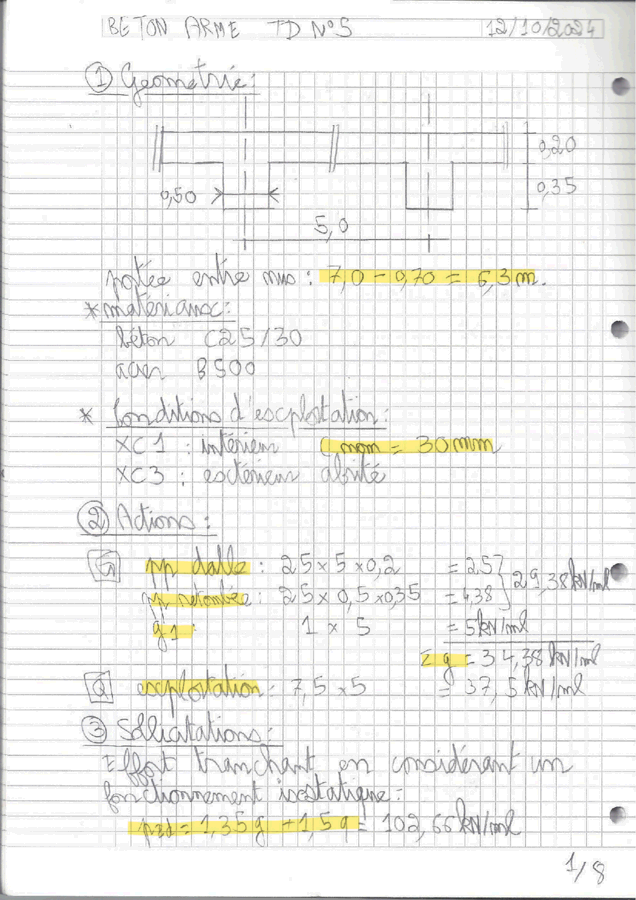 BETON ARME TD N°5 12/10/2024
① Géométrie:
0,20
0,50
0,35
5,0
portée entre nus : 7,0 - 0,70 = 6,3m.
* matériaux:
béton C25/30
acier B500
* Conditions d'exploitation:
XC1 : intérieur Cnom = 30mm
XC3 : extérieur abrité
② Actions:
G pp dalle : 25 x 5 x 0,2 = 25
pp retombée : 25 x 0,5 x 0,35 = 4,38 } 29,38 kN/ml
g1 : 1 x 5 = 5kN/ml
Σ g = 34,38 kN/ml
Q exploitation : 7,5 x 5 = 37,5 kN/ml
③ Sollicitations:
Effort tranchant en considérant un
fonctionnement isostatique:
pEd = 1,35g + 1,5q = 102,66 kN/ml
1/8